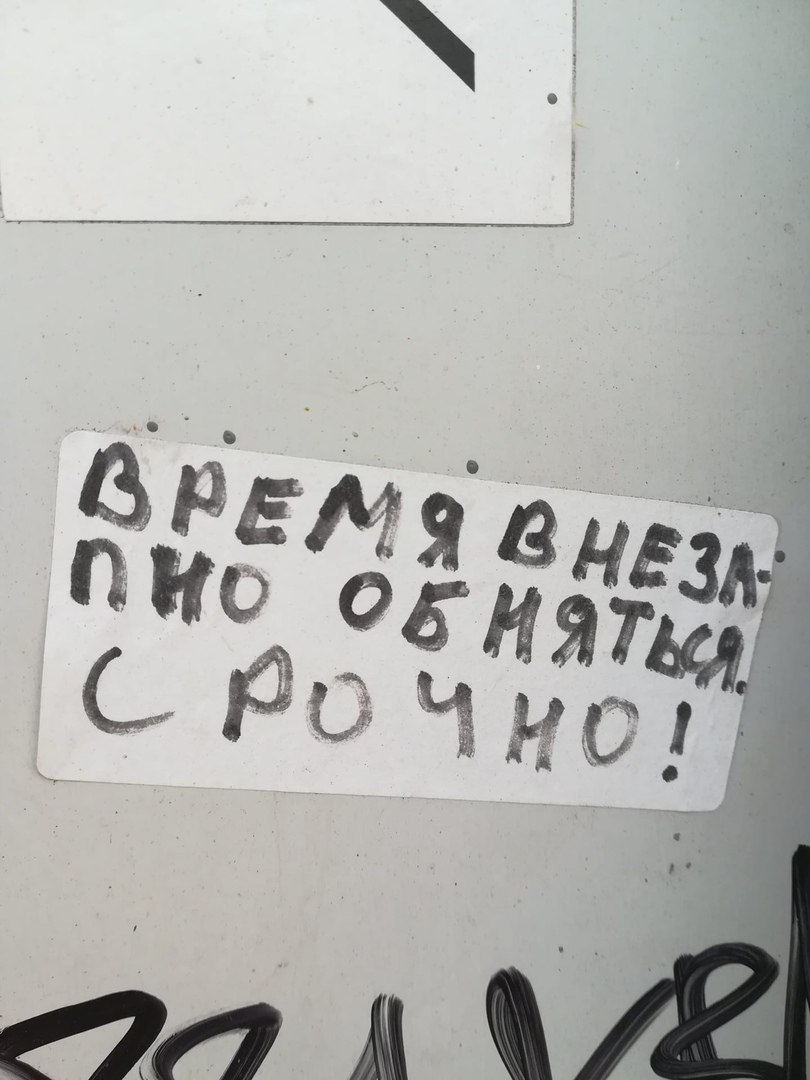 ВРЕМЯ ВНЕЗА-
ПНО ОБНЯТЬСЯ.
СРОЧНО!